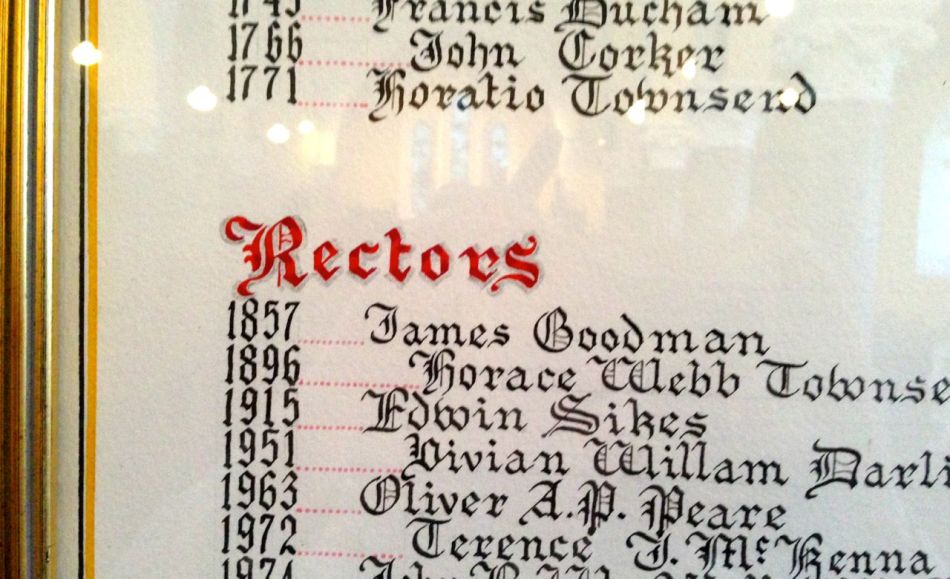 Francis Ducham
1766 John Corker
1771 Horatio Townsend
Rectors
1857 James Goodman
1896 Horace Webb Townse
1915 Edwin Sikes
1951 Vivian Willam Darli
1963 Oliver A.P. Peare
1972 Terence J. McKenna
1974 John